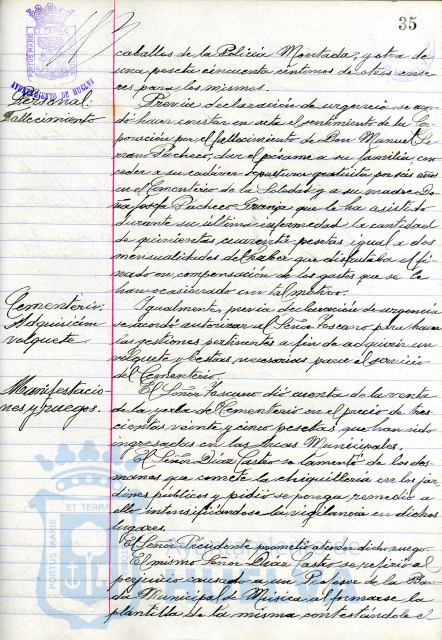 35
PORTUS MARIS
ET TERRÆ
AYUNTAMIENTO DE HUELVA
caballos de la Policia Montada; y otra de
una peseta cincuenta centimos de otros ense-
res para los mismos.
Personal.
Fallecimiento
Previa declaración de urgencia se acor-
dó hacer constar en acta el sentimiento de la Cor-
poración por el fallecimiento de Don Manuel
Pacheco, dar el pésame a su familia, con-
ceder a su cadáver sepultura gratuita por seis años
en el Cementerio de la Soledad y a su madre Do-
ña Josefa Pacheco Granja que le ha asistido
durante su última enfermedad la cantidad
de quinientas cuarenta pesetas igual a dos
mensualidades del haber que disfrutaba el fi-
nado en compensación de los gastos que se le
han ocasionado con tal motivo.
Cementerio:
Adquisición
volquete
Igualmente, previa declaración de urgencia
se acordó autorizar al Señor Toscano para hacer
las gestiones pertinentes a fin de adquirir un
volquete y bestias necesarias para el servicio
del Cementerio.
Manifestacio-
nes y ruegos.
El Señor Toscano dió cuenta de la venta
de la yerba del Cementerio en el precio de tres-
cientas veinte y cinco pesetas que han sido
ingresadas en las Arcas Municipales.
El Señor Díaz Castro se lamentó de los des-
manes que comete la chiquillería en los jar-
dines públicos y pidió se ponga remedio a
ello intensificándose la vigilancia en dichos
lugares.
El Señor Presidente prometió atender dicho ruego.
El mismo Señor Díaz Castro se refirió al
perjuicio causado a un Profesor de la Ban-
da Municipal de Música al formarse la
plantilla de la misma contestándole el
ET TERRÆ
PORTUS MARIS